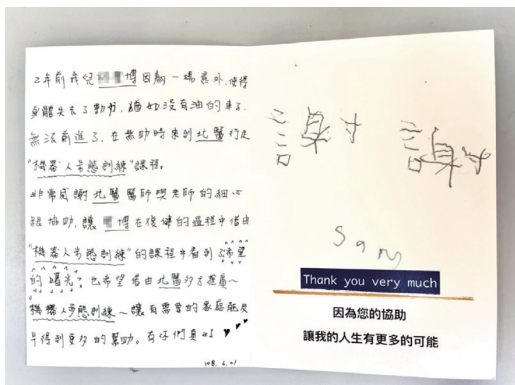 2年前我兒博因為一場意外,使得
身體失去了動力,猶如沒有油的車子,
無法前進了,在無助時來到北醫行走
"機器人步態訓練"課程。
非常感謝北醫醫師與老師的細心
協助,讓博在復健的過程中借由
"機器人步態訓練"的課程中看到"希望
的曙光",也希望借由北醫
機器人步態訓練~讓有需要的家庭能及
早得到更多的幫助。有你們真好
謝謝 謝謝
Sam
Thank you very much
因為您的協助
讓我的人生有更多的可能